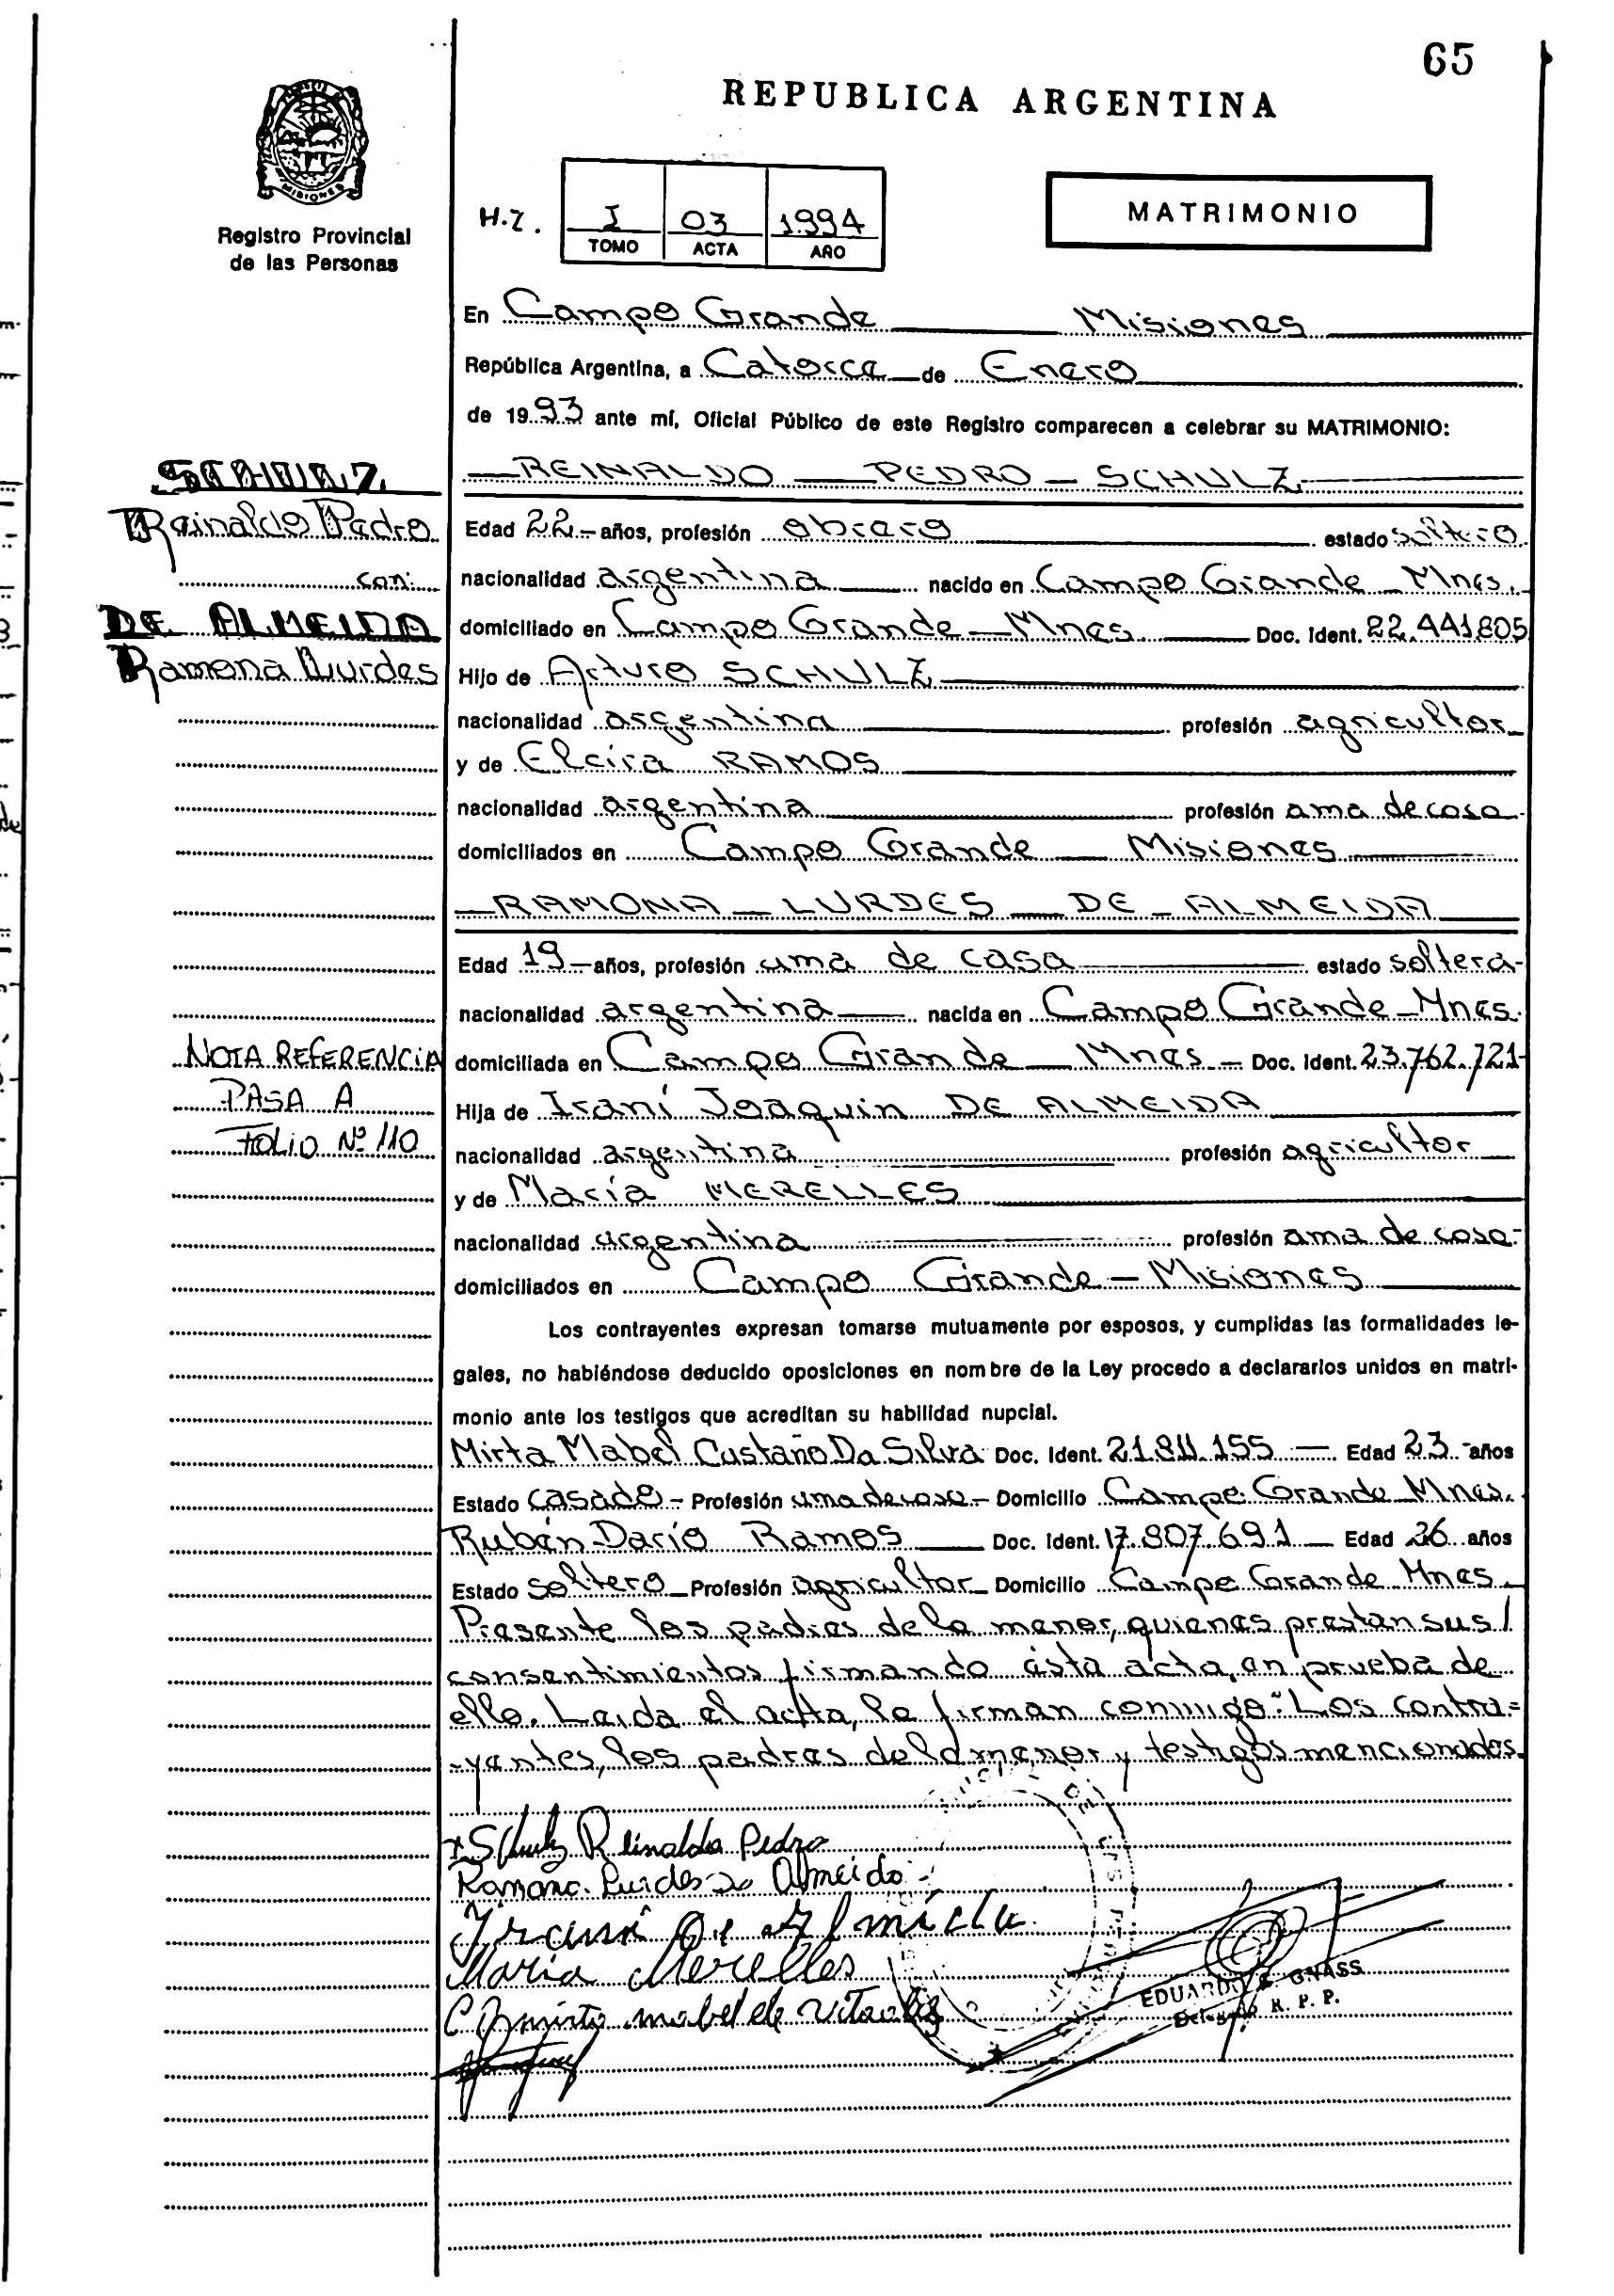 65
REPUBLICA ARGENTINA
MISIONES
Registro Provincial
de las Personas
H.Z. I 03 1994
TOMO ACTA AÑO
MATRIMONIO
En Campo Grande Misiones
República Argentina, a Catorce de Enero
de 1993 ante mí, Oficial Público de este Registro comparecen a celebrar su MATRIMONIO:
SCHULZ
Reinaldo Pedro
con:
DE ALMEIDA
Ramona Lurdes
REINALDO PEDRO SCHULZ
Edad 22 años, profesión obrero estado soltero
nacionalidad argentina nacido en Campo Grande Mnes.
domiciliado en Campo Grande Mnes Doc. Ident. 22.441805
Hijo de Arturo SCHULZ
nacionalidad argentina profesión agricultor
y de Elcira RAMOS
nacionalidad argentina profesión ama de casa
domiciliados en Campo Grande Misiones
RAMONA LURDES DE ALMEIDA
Edad 19 años, profesión ama de casa estado soltera
nacionalidad argentina nacida en Campo Grande Mnes.
domiciliada en Campo Grande Mnes Doc. Ident. 23.762.721
Hija de Iraní Joaquin DE ALMEIDA
nacionalidad argentina profesión agricultor
y de María MERELLES
nacionalidad argentina profesión ama de casa
domiciliados en Campo Grande - Misiones
NOTA REFERENCIA
PASA A
FOLIO Nº 110
Los contrayentes expresan tomarse mutuamente por esposos, y cumplidas las formalidades le-
gales, no habiéndose deducido oposiciones en nombre de la Ley procedo a declararlos unidos en matri-
monio ante los testigos que acreditan su habilidad nupcial.
Mirta Mabel Custaño Da Silva Doc. Ident. 21.811.155 Edad 23 años
Estado casado Profesión ama de casa Domicilio Campo Grande Mnes.
Rubén Darío Ramos Doc. Ident. 17.807.691 Edad 26 años
Estado soltero Profesión agricultor Domicilio Campo Grande Mnes.
Presente los padres de la menor, quienes prestan sus/
consentimientos firmando ésta acta, en prueba de
ello. Leida el acta, la firman conmigo: Los contra=
-yentes, los padres de la menor y testigos mencionados.
Schulz Reinaldo Pedro
Ramona Lurdes de Almeida
Irani De Almeida
María Merelles
mabel de
EDUARDO GNASS
Delegado R. P. P.